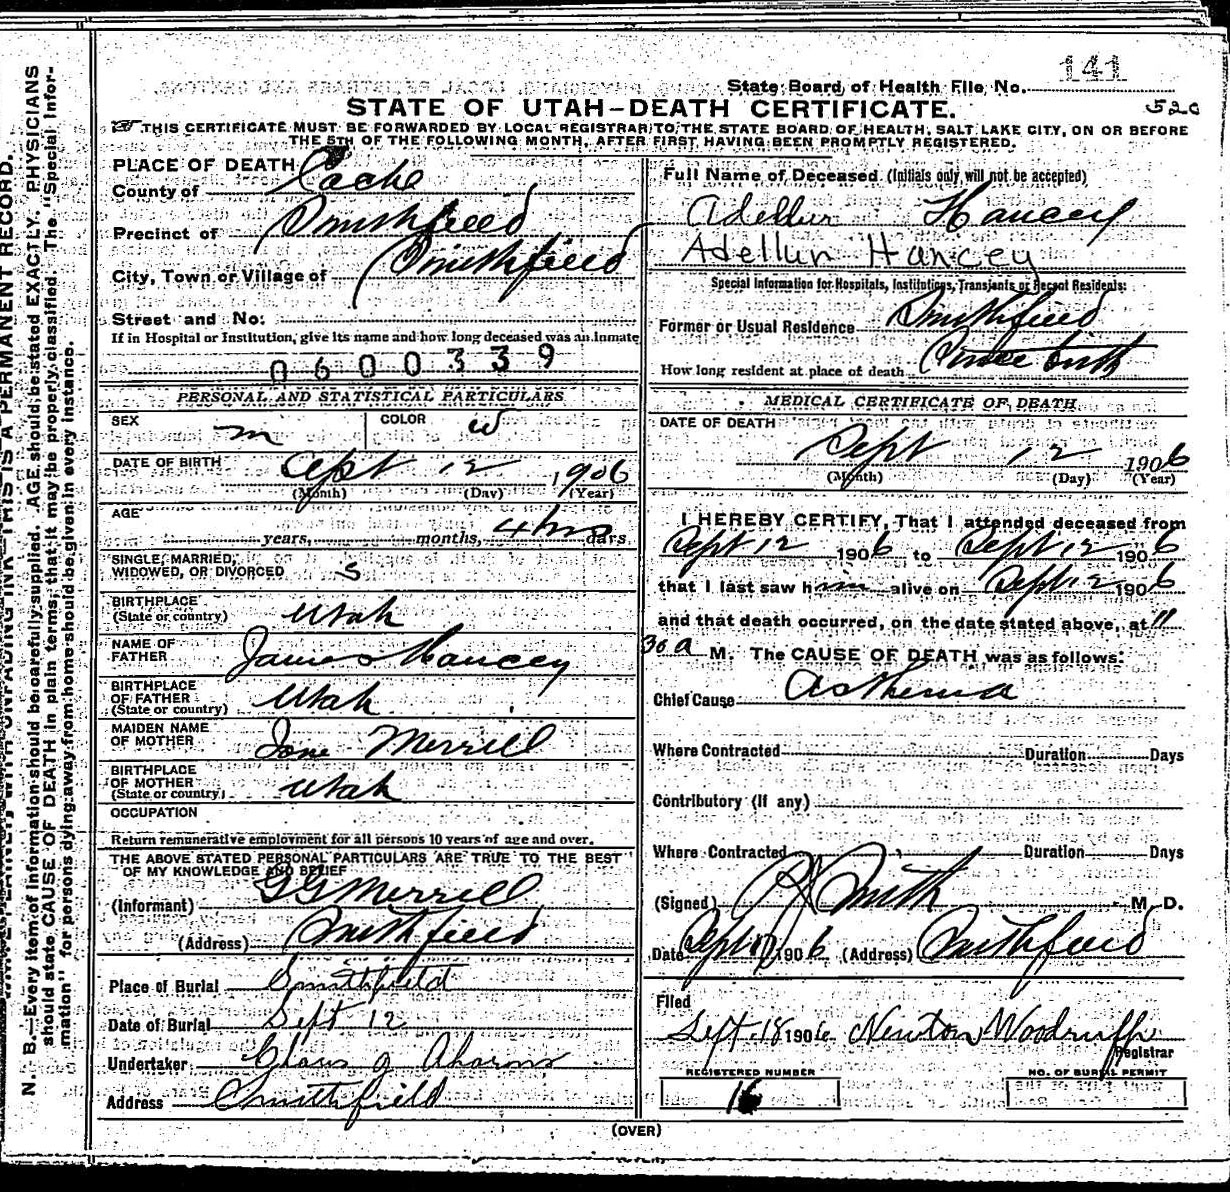 141
State Board of Health File No.
STATE OF UTAH—DEATH CERTIFICATE.
520
THIS CERTIFICATE MUST BE FORWARDED BY LOCAL REGISTRAR TO THE STATE BOARD OF HEALTH, SALT LAKE CITY, ON OR BEFORE
THE 5TH OF THE FOLLOWING MONTH, AFTER FIRST HAVING BEEN PROMPTLY REGISTERED.
PLACE OF DEATH
County of Cache
Precinct of Smithfield
City, Town or Village of Smithfield
Street and No.
If in Hospital or Institution, give its name and how long deceased was an inmate
0600339
PERSONAL AND STATISTICAL PARTICULARS
SEX m COLOR w
DATE OF BIRTH Sept 12, 1906
(Month) (Day) (Year)
AGE
years, months, 4 hrs days
SINGLE, MARRIED,
WIDOWED, OR DIVORCED S
BIRTHPLACE
(State or country) Utah
NAME OF
FATHER James Hancey
BIRTHPLACE
OF FATHER
(State or country) Utah
MAIDEN NAME
OF MOTHER Ione Merrill
BIRTHPLACE
OF MOTHER
(State or country) Utah
OCCUPATION
Return remunerative employment for all persons 10 years of age and over.
THE ABOVE STATED PERSONAL PARTICULARS ARE TRUE TO THE BEST
OF MY KNOWLEDGE AND BELIEF
(Informant) G G Merrill
(Address) Smithfield
Place of Burial Smithfield
Date of Burial Sept 12
Undertaker
Address Smithfield
Full Name of Deceased (Initials only will not be accepted)
Adellun Hancey
Adellun Hancey
Special Information for Hospitals, Institutions, Transients or Recent Residents:
Former or Usual Residence Smithfield
How long resident at place of death Since birth
MEDICAL CERTIFICATE OF DEATH
DATE OF DEATH
Sept 12 1906
(Month) (Day) (Year)
I HEREBY CERTIFY, That I attended deceased from
Sept 12 1906 to Sept 12 1906
that I last saw him alive on Sept 12 1906
and that death occurred, on the date stated above, at 11
30 a M. The CAUSE OF DEATH was as follows:
Chief Cause Asthenia
Where Contracted Duration Days
Contributory (If any)
Where Contracted Duration Days
(Signed) Smith M. D.
Date Sept 1906 (Address) Smithfield
Filed
Sept. 18 1906 Newton Woodruff
Registrar
REGISTERED NUMBER NO. OF BURIAL PERMIT
16
(OVER)
N. B.—Every item of information should be carefully supplied. AGE should be stated EXACTLY. PHYSICIANS
should state CAUSE OF DEATH in plain terms, that it may be properly classified. The "Special Infor-
mation" for persons dying away from home should be given in every instance.